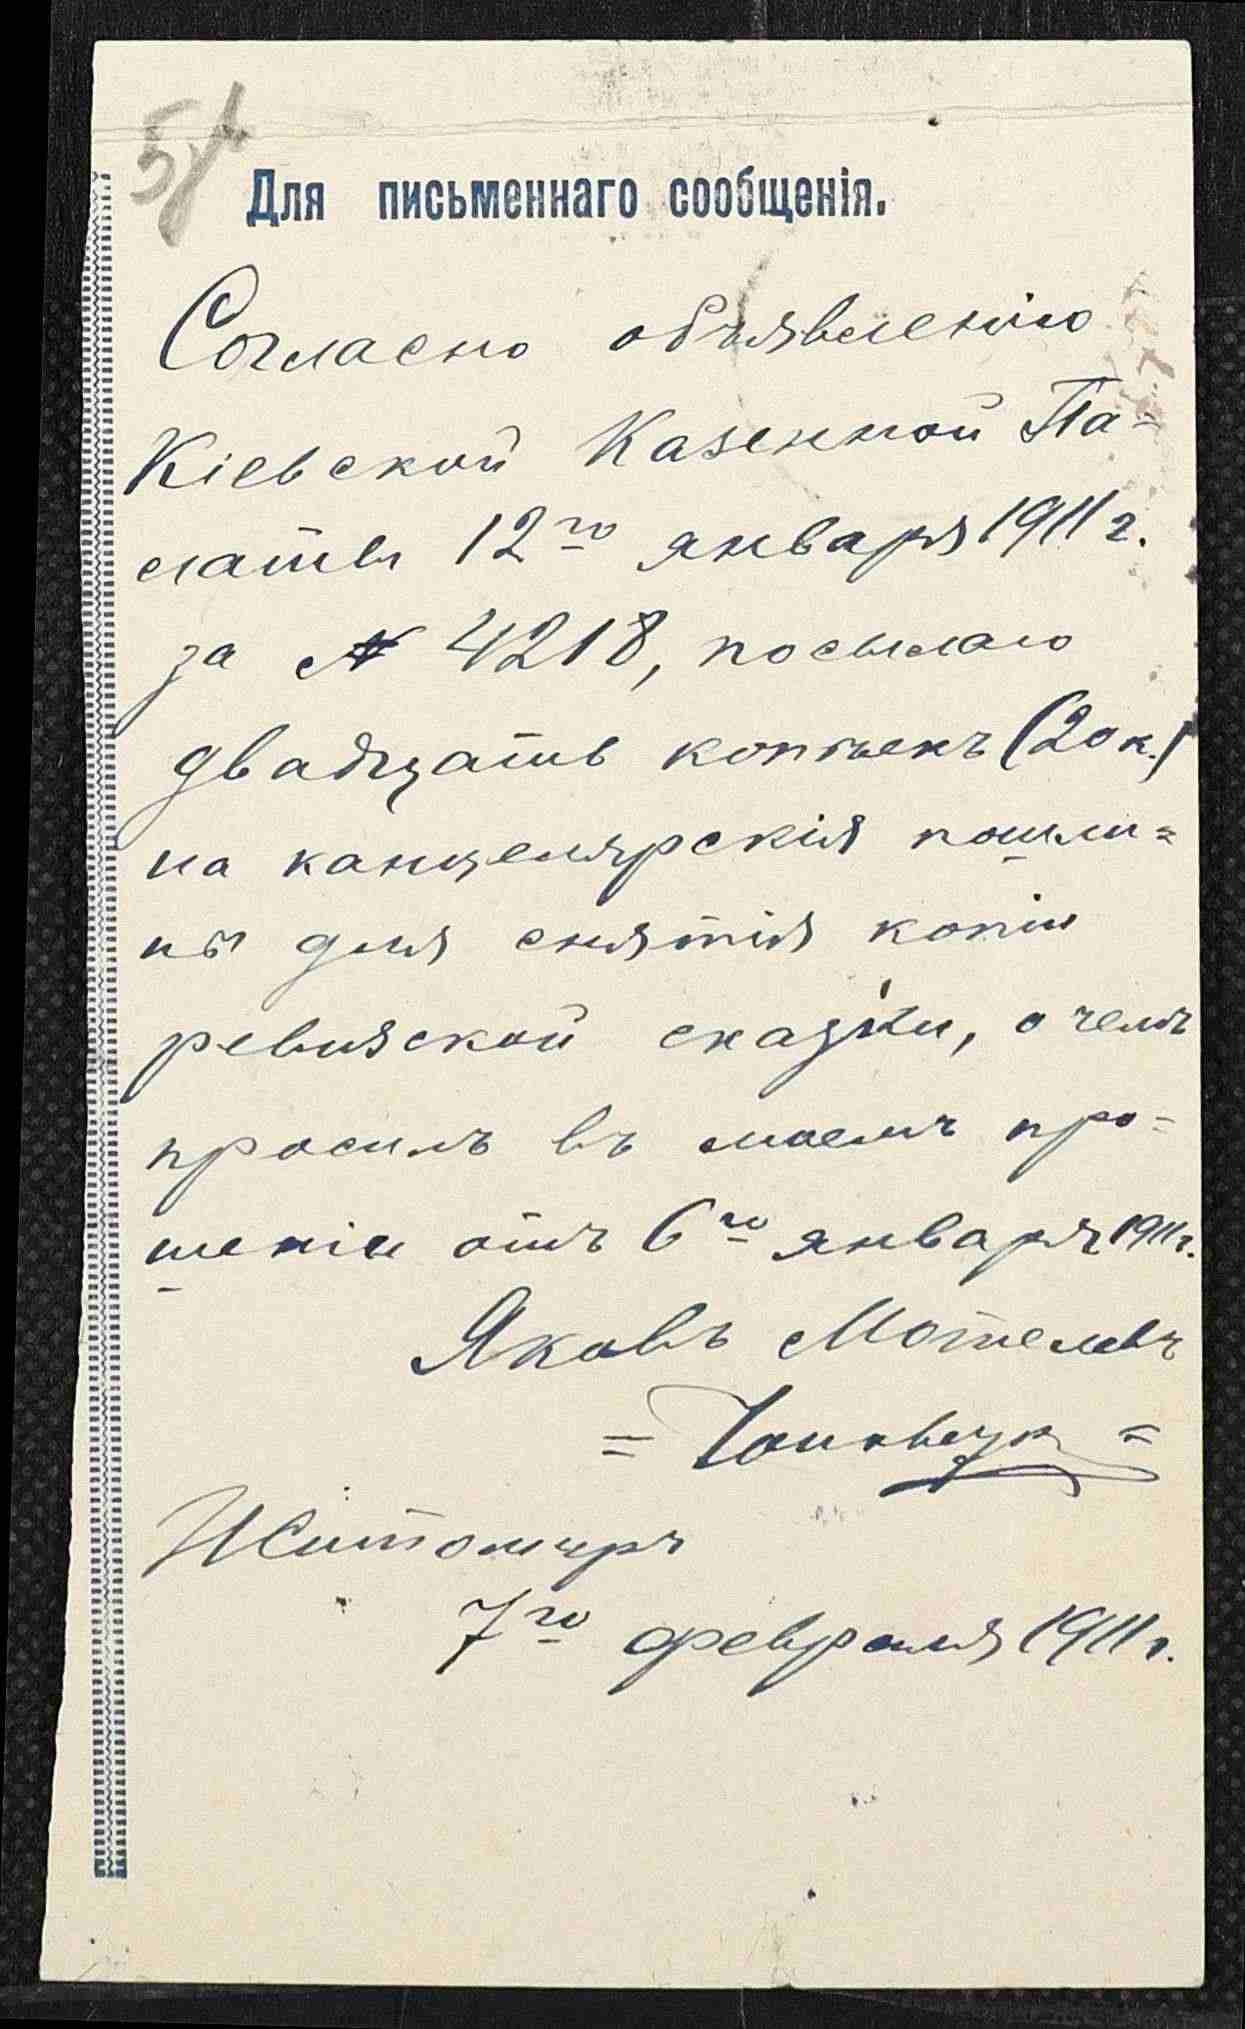 Для письменнаго сообщенія.
Согласно объявленію
Кіевской Казенной Па-
латы 12го января 1911 г.
за № 4218, посылаю
двадцать копѣекъ (20 к.)
на канцелярскія пошли=
ны для снятія копіи
ревизской сказки, о чемъ
просилъ въ моемъ про=
шеніи отъ 6го января 1911 г.
Яковъ Мотелевъ
Житомиръ
7го февраля 1911 г.